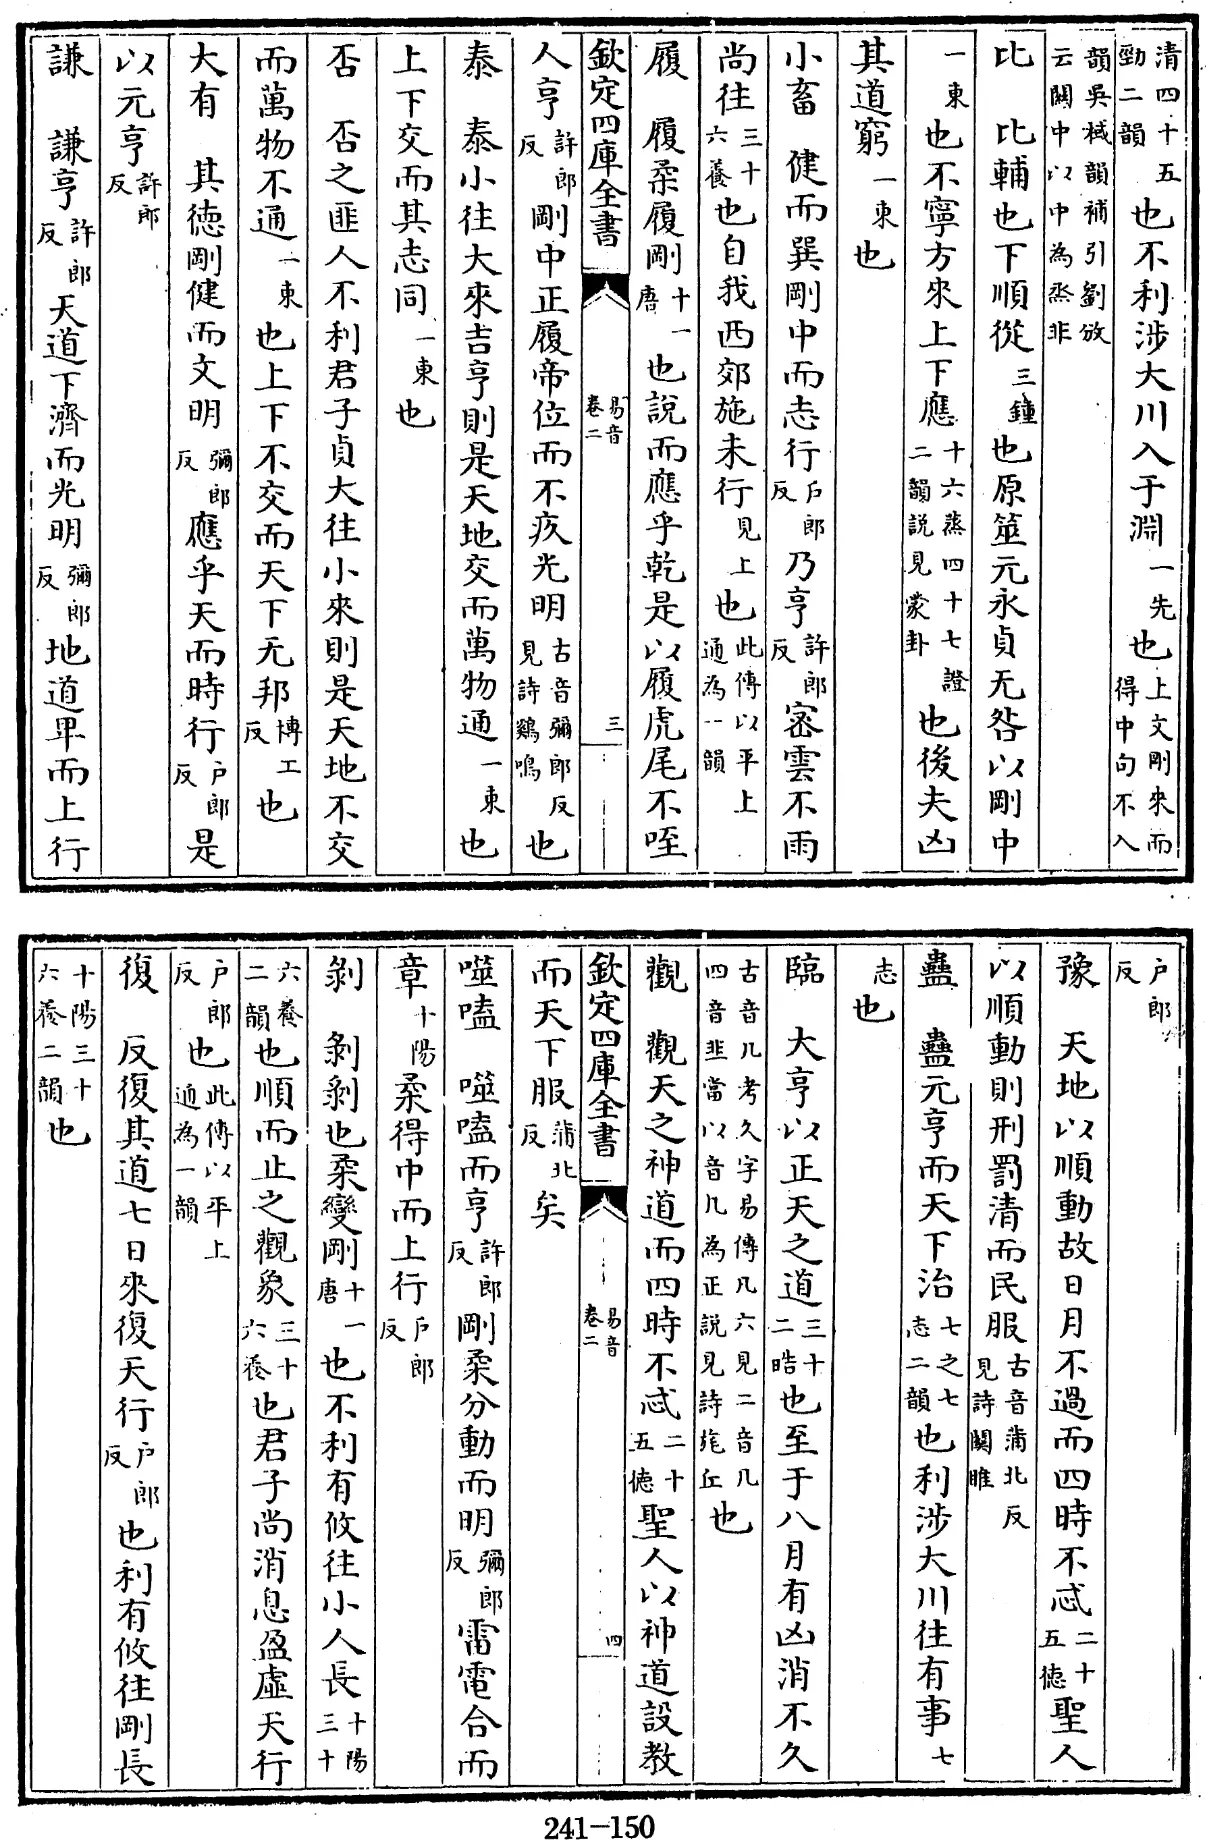 清四十五勁二韻也不利涉大川入于淵一先也上文剛來而得中句不入
韻吳棫韻補引劉攽云關中以中為烝非
比　比輔也下順從三鍾也原筮元永貞无咎以剛中
一東也不寧方來上下應十六蒸四十七證二韻說見蒙卦也後夫凶
其道窮一東也
小畜　健而巽剛中而志行戶郎反乃亨許郎反密雲不雨
尚往三十六養也自我西郊施未行見上也此傳以平上通為一韻
履　履柔履剛十一唐也說而應乎乾是以履虎尾不咥
欽定四庫全書　易音卷二　三
人亨許郎反剛中正履帝位而不疚光明古音彌郎反見詩雞鳴也
泰　泰小往大來吉亨則是天地交而萬物通一東也
上下交而其志同一東也
否　否之匪人不利君子貞大往小來則是天地不交
而萬物不通一東也上下不交而天下无邦博工反也
大有　其德剛健而文明彌郎反應乎天而時行戶郎反是
以元亨許郎反
謙　謙亨許郎反天道下濟而光明彌郎反地道卑而上行
戶郎反
豫　天地以順動故日月不過而四時不忒二十五德聖人
以順動則刑罰清而民服古音蒲北反見詩關雎
蠱　蠱元亨而天下治七之七志二韻也利涉大川往有事七
志也
臨　大亨以正天之道三十二晧也至于八月有凶消不久
古音几考久字易傳凡六見二音几四音韭當以音几為正說見詩旄丘也
觀　觀天之神道而四時不忒二十五德聖人以神道設教
欽定四庫全書　易音卷二　四
而天下服蒲北反矣
噬嗑　噬嗑而亨許郎反剛柔分動而明彌郎反雷電合而
章十陽柔得中而上行戶郎反
剝　剝剝也柔變剛十一唐也不利有攸往小人長十陽三十
六養二韻也順而止之觀象三十六養也君子尚消息盈虛天行
戶郎反也此傳以平上通為一韻
復　反復其道七日來復天行戶郎反也利有攸往剛長
十陽三十六養二韻也
241-150